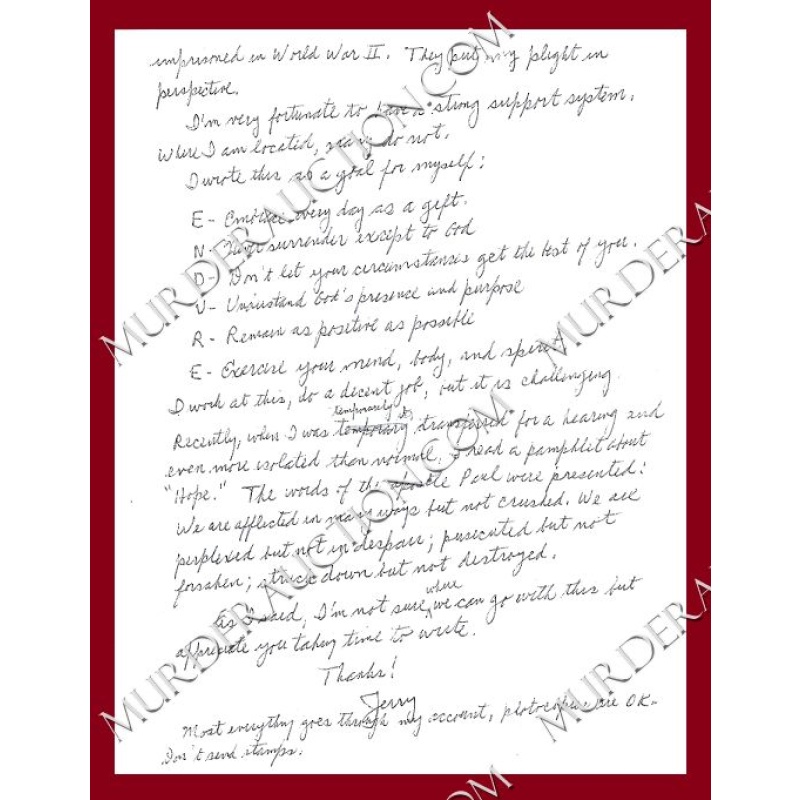 imprisoned in World War II. They put my plight in
perspective.
I'm very fortunate to have a strong support system.
Where I am located, many do not.
I wrote this as a goal for myself:
E - Embrace every day as a gift.
N - Never surrender except to God
D - Don't let your circumstances get the best of you.
U - Understand God's presence and purpose
R - Remain as positive as possible
E - Exercise your mind, body, and spirit
I work at this, do a decent job, but it is challenging.
temporarily
Recently, when I was temporary transferred for a hearing and
even more isolated than normal, I read a pamphlet about
"Hope." The words of the Apostle Paul were presented:
We are afflicted in many ways but not crushed. We are
perplexed but not in despair; persecuted but not
forsaken; struck down but not destroyed.
As I said, I'm not sure where we can go with this but
appreciate you taking time to write.
Thanks!
Jerry
Most everything goes through my account, photocopies are OK.
Don't send stamps.
MURDERAUCTION.COM
MURDERAUCTION.COM